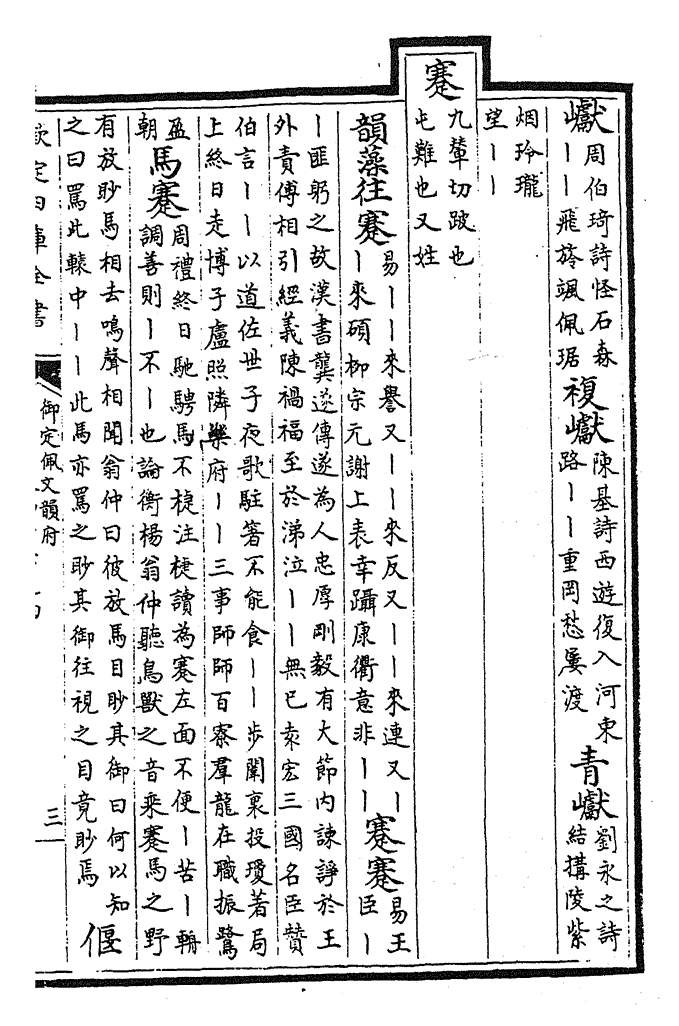 巘周伯琦詩怪石森
丨丨飛旍颯佩琚
複巘陳基詩西遊復入河東
路丨丨重岡愁屢渡
青巘劉永之詩
結搆陵紫
烟玲瓏
望丨丨
蹇
九輦切跛也
屯難也又姓
韻藻往蹇易丨丨來譽又丨丨來反又丨丨來連又丨
丨來碩柳宗元謝上表幸躡康衢意非丨丨
蹇蹇易王
臣丨
丨匪躬之故漢書龔遂傳遂為人忠厚剛毅有大節内諫諍於王
外責傅相引經義陳禍福至於涕泣丨丨無已袁宏三國名臣贊
伯言丨丨以道佐世子夜歌駐箸不能食丨丨步闈裏投瓊著局
上終日走博子盧照隣樂府丨丨三事師師百寮羣龍在職振鷺
盈
朝
馬蹇周禮終日馳騁馬不楗注楗讀為蹇左面不便丨苦丨輈
調善則丨不丨也論衡楊翁仲聽鳥獸之音乘蹇馬之野
有放眇馬相去鳴聲相聞翁仲曰彼放馬目眇其御曰何以知
之曰罵此轅中丨丨此馬亦罵之眇其御往視之目竟眇焉
偃
欽定四庫全書
御定佩文韻府
三